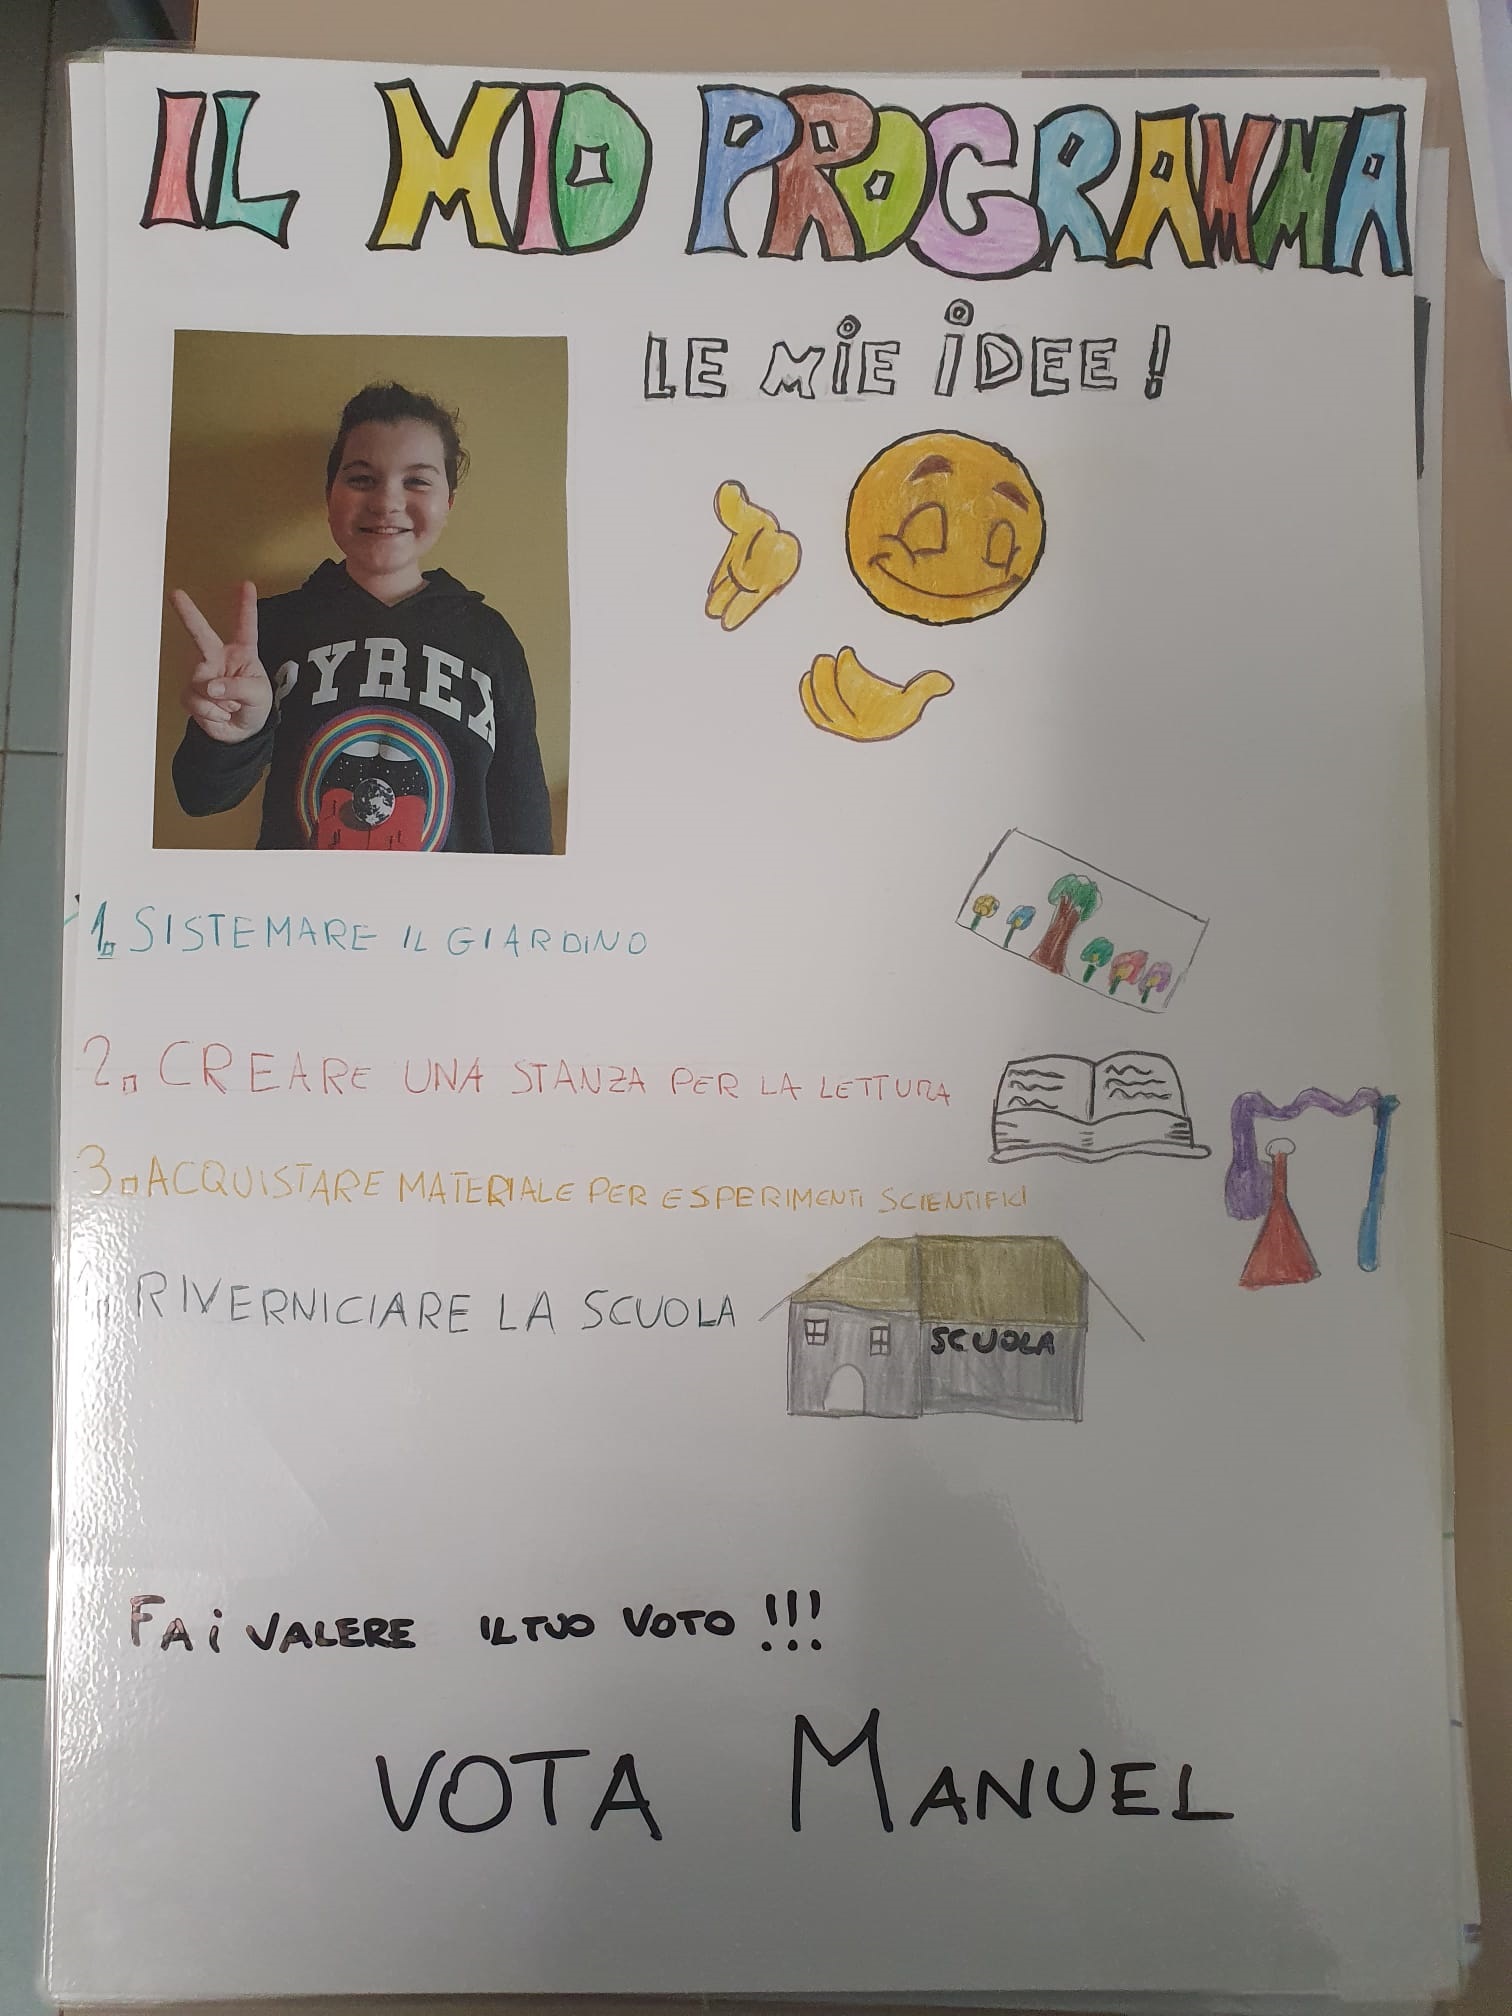 IL MIO PROGRAMMA
LE MIE IDEE!
PYREX
1. SISTEMARE IL GIARDINO
2. CREARE UNA STANZA PER LA LETTURA
3. ACQUISTARE MATERIALE PER ESPERIMENTI SCIENTIFICI
RIVERNICIARE LA SCUOLA
SCUOLA
FAi VALERE IL TUO VOTO !!!
VOTA MANUEL